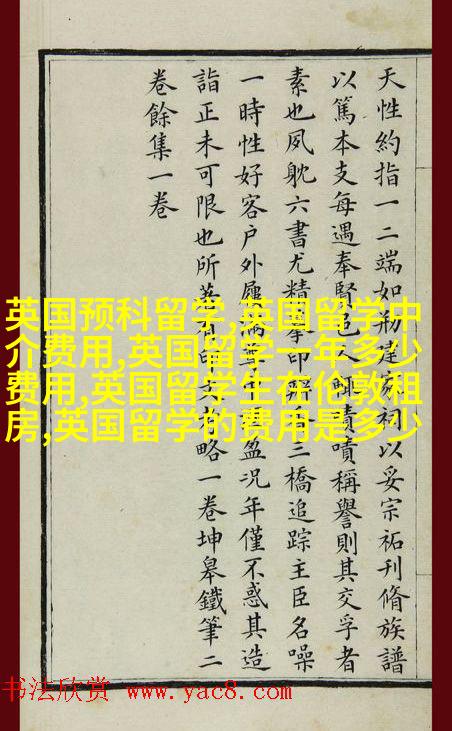 天性約指一二端如剏建家祠以妥宗祏刊脩族譜
以篤本支每遇奉賢邑人輒嘖嘖稱譽則其交孚者
素也夙躭六書尤精摹印三橋追踪主臣名噪
一時性好客户外屨滿尊盈况年僅不惑其造
詣正未可限也所著有印文攷略一卷坤皋鐵筆二
卷餘集一卷
英国预科留学,英国留学中
介费用,英国留学一年多少
费用,英国留学生在伦敦租
房,英国留学的费用是多少
书法欣赏 www.yac8.com